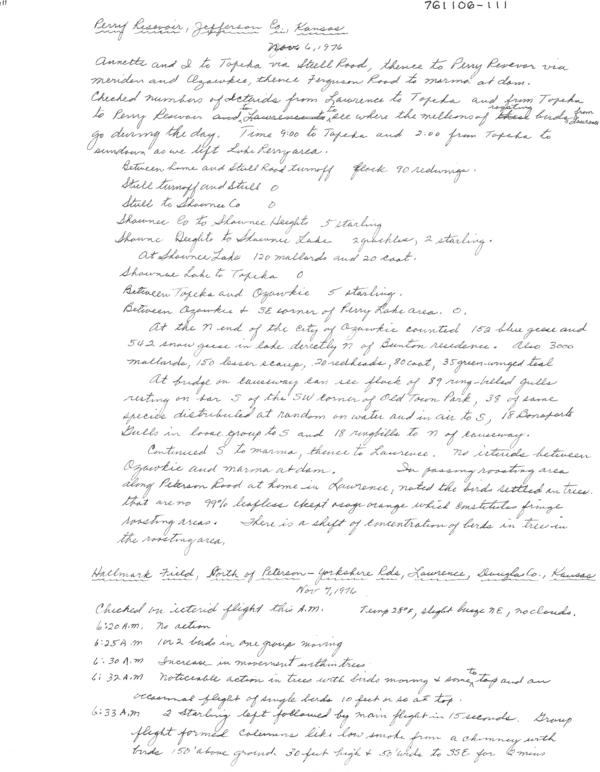 761106-111
Perry Resevoir, Jefferson Co., Kansas
Nov. 6, 1976
Annette and I to Topeka via Stull Road, thence to Perry Resevoir via
meriden and Ozawkie, thence Ferguson Road to marma at dam.
Checked numbers of icterids from Lawrence to Topeka and from Topeka
to Perry Resevoir and to Lawrence to see where the millions of roosting birds from Lawrence
go during the day. Time 9:00 to Topeka and 2:00 from Topeka to
sundown as we left Lake Perry area.
Between home and Stull Road turnoff flock 90 redwings.
Stull turnoff and Stull 0
Stull to Shawnee Co 0
Shawnee Co to Shawnee Heights 5 starling
Shawne Heights to Shawnee Lake 2 grackles, 2 starling.
At Shawnee Lake 120 mallards and 20 coot.
Shawnee Lake to Topeka 0
Between Topeka and Ozawkie 5 starling.
Between Ozawkie & SE corner of Perry Lake area. 0.
At the N end of the City of Ozawkie counted 152 blue geese and
542 snow geese in lake directly N of Bunton residence. Also 3000
mallards, 150 lesser scaup, 20 redheads, 80 coot, 35 green-winged teal
At bridge on causeway can see flock of 89 ring-billed gulls
resting on bar S of the SW corner of Old Town Park, 38 of same
species distributed at random on water and in air to S, 18 Bonaparte
Gulls in loose group to S and 18 ringbills to N of causeway.
Continued S to marma, thence to Lawrence. No icterids between
Ozawkie and marma at dam. In passing roosting area
along Peterson Road at home in Lawrence, noted the birds settled in trees
that are no 99% leafless except osage orange which constitutes fringe
roosting areas. There is a shift of concentration of birds in trees in
the roosting area.
Hallmark Field, North of Peterson-Yorkshire Rds, Lawrence, Douglas Co., Kansas
Nov 7, 1976
Checked on icterid flight this A.M. Temp 28°, slight breeze NE, no clouds.
6:20 A.M. No action
6:25 A.M 1 or 2 birds in one group moving
6:30 A.M Increase in movement within trees
6:32 A.M Noticeable action in trees with birds moving & some to top and an
occasional flight of single birds 10 feet or so at top.
6:33 A.M 2 Starling left followed by main flight in 15 seconds. Group
flight formed columns like low smoke from a chimney with
birds 150' above ground 30 feet high & 50' wide to SSE for 2 mins